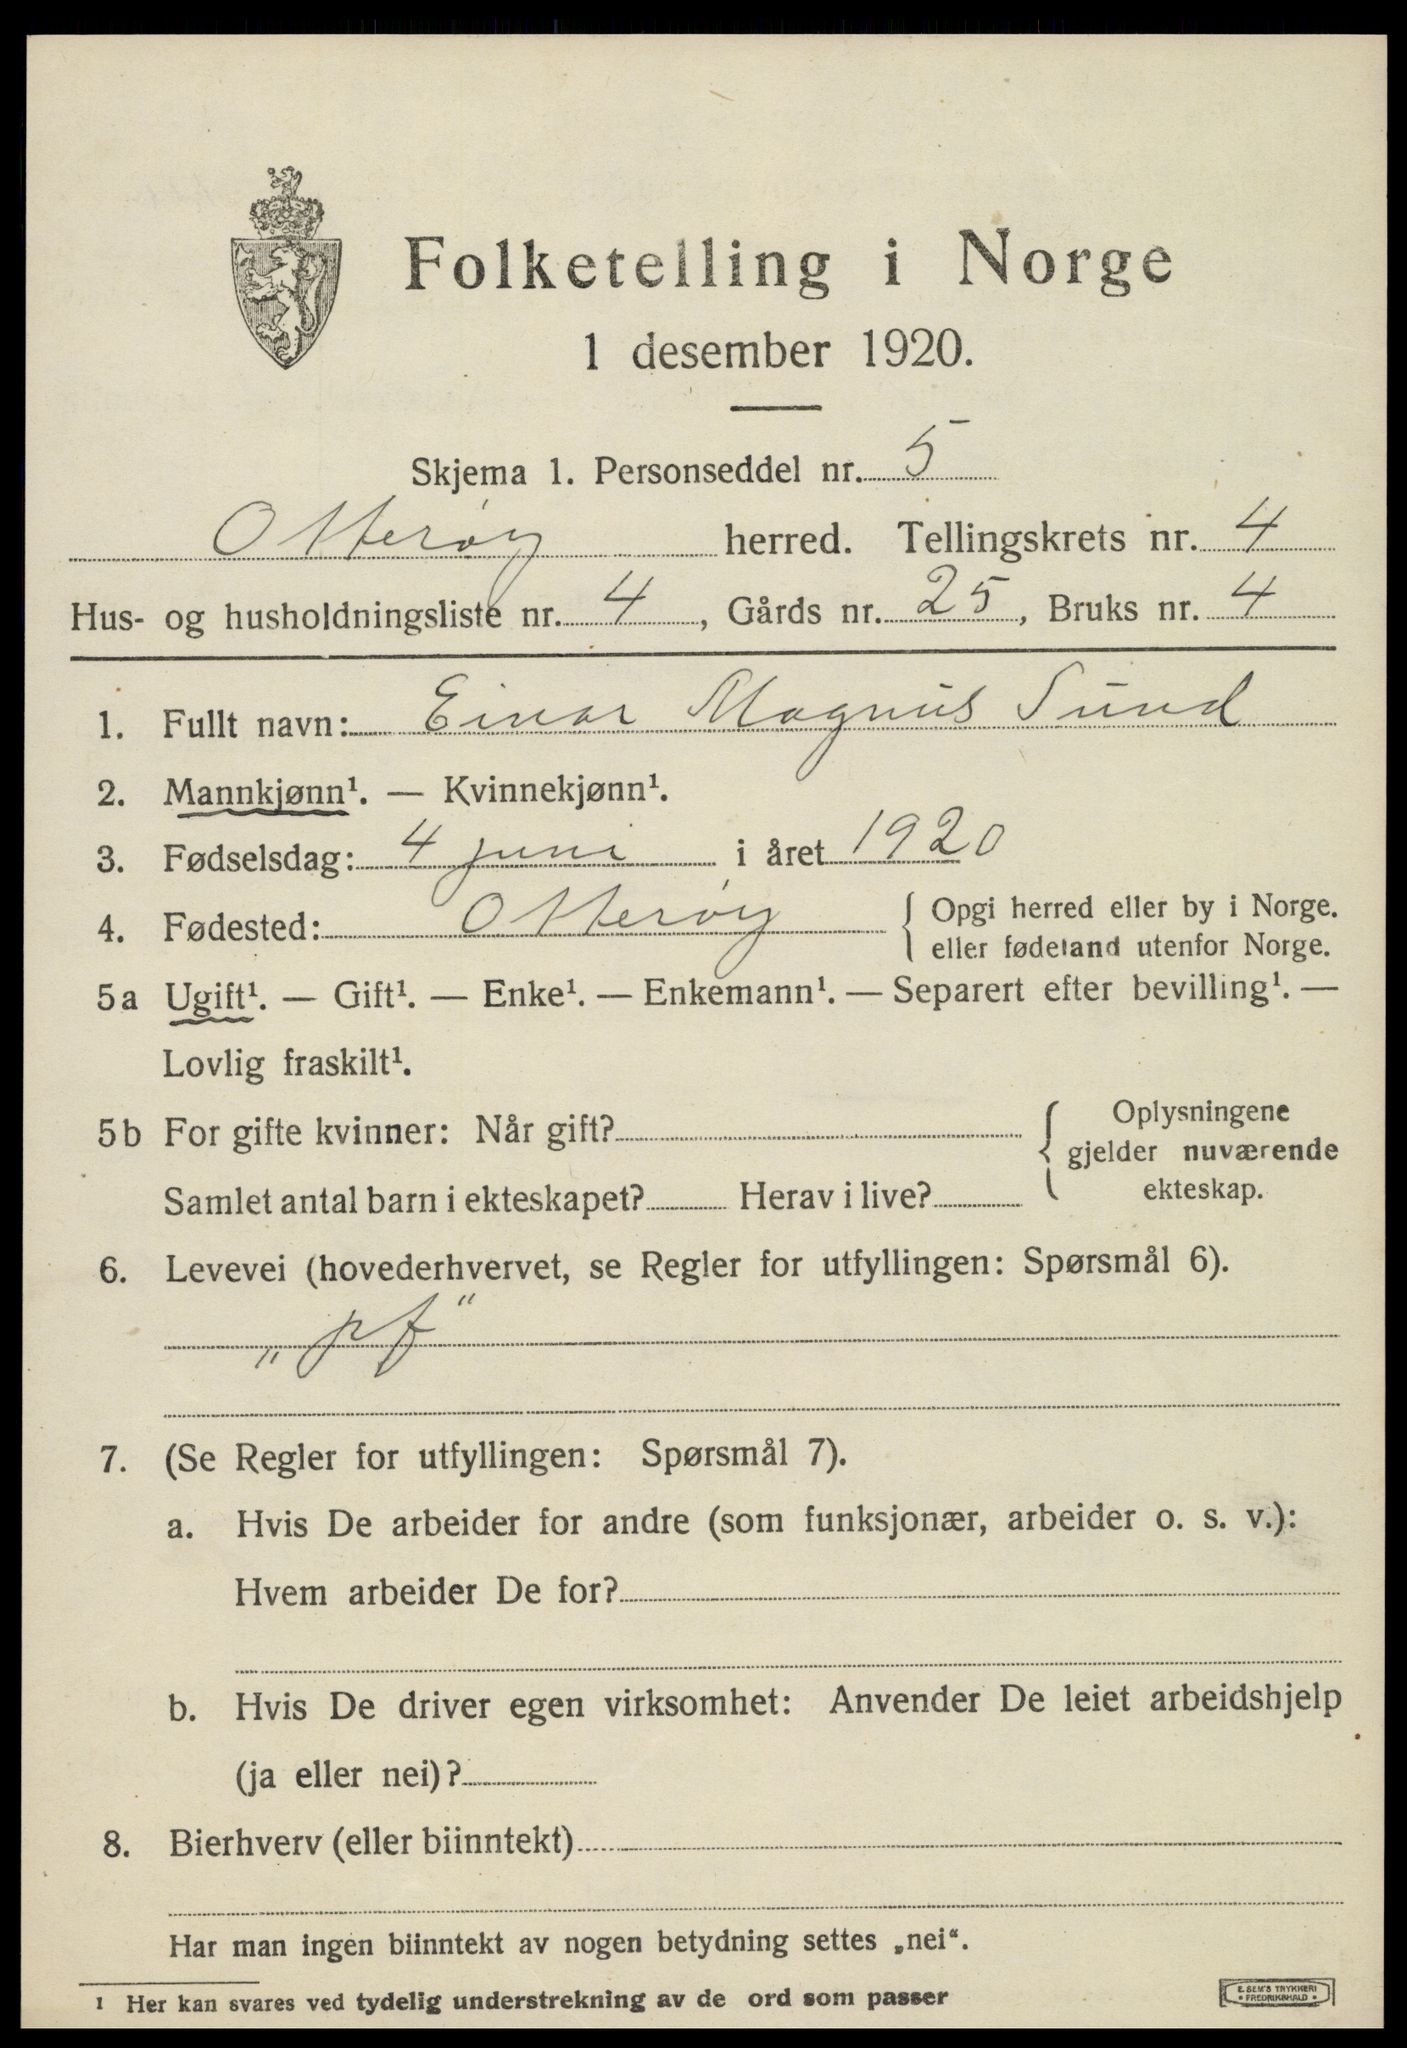 Folketelling i Norge
1 desember 1920.
Skjema 1. Personseddel nr. 5
Otterøy herred. Tellingskrets nr. 4
Hus- og husholdningsliste nr. 4, Gårds nr. 25, Bruks nr. 4
1. Fullt navn: Einar Magnus Sund
2. Mannkjønn¹. — Kvinnekjønn¹.
3. Fødselsdag: 4 juni i året 1920
4. Fødested: Otterøy { Opgi herred eller by i Norge.
eller fødeland utenfor Norge.
5a Ugift¹. — Gift¹. — Enke¹. — Enkemann¹. — Separert efter bevilling¹. —
Lovlig fraskilt¹.
5b For gifte kvinner: Når gift?
Samlet antal barn i ekteskapet? Herav i live?
{ Oplysningene
gjelder nuværende
ekteskap.
6. Levevei (hovederhvervet, se Regler for utfyllingen: Spørsmål 6).
„pf“
7. (Se Regler for utfyllingen: Spørsmål 7).
a. Hvis De arbeider for andre (som funksjonær, arbeider o. s. v.):
Hvem arbeider De for?
b. Hvis De driver egen virksomhet: Anvender De leiet arbeidshjelp
(ja eller nei)?
8. Bierhverv (eller biinntekt)
Har man ingen biinntekt av nogen betydning settes „nei“.
1 Her kan svares ved tydelig understrekning av de ord som passer
E. SEM'S TRYKKERI
• FREDRIKSHALD •